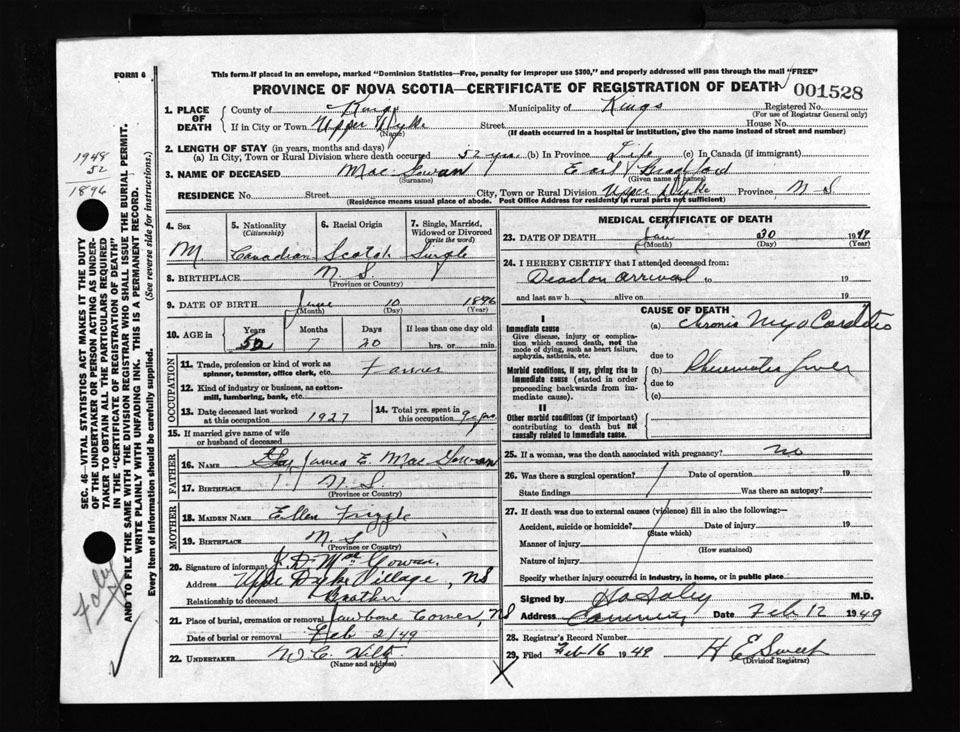 FORM 6
This form if placed in an envelope, marked "Dominion Statistics—Free, penalty for improper use $300," and properly addressed will pass through the mail "FREE"
PROVINCE OF NOVA SCOTIA—CERTIFICATE OF REGISTRATION OF DEATH 001528
1. PLACE OF DEATH
County of Kings Municipality of Kings Registered No.
(For use of Registrar General only)
If in City or Town Upper Dyke Street House No.
(Name) (If death occurred in a hospital or institution, give the name instead of street and number)
2. LENGTH OF STAY (in years, months and days)
(a) In City, Town or Rural Division where death occurred 52 yrs (b) In Province Life (c) In Canada (if immigrant)
3. NAME OF DECEASED Mac Gowan Earl Bradford
(Surname) (Given names)
RESIDENCE No. Street City, Town or Rural Division Upper Dyke Province N-S
(Residence means usual place of abode. Post Office Address for residents in rural parts not sufficient)
4. Sex M
5. Nationality (Citizenship) Canadian
6. Racial Origin Scotch
7. Single, Married, Widowed or Divorced (write the word) Single
8. BIRTHPLACE N. S.
(Province or Country)
9. DATE OF BIRTH June 10 1896
(Month) (Day) (Year)
10. AGE in Years Months Days If less than one day old
52 7 20 hrs. or min.
OCCUPATION
11. Trade, profession or kind of work as spinner, teamster, office clerk, etc. Farmer
12. Kind of industry or business, as cotton-mill, lumbering, bank, etc.
13. Date deceased last worked at this occupation 1927
14. Total yrs. spent in this occupation 9 yrs
15. If married give name of wife or husband of deceased
FATHER
16. NAME James E. Mac Gowan
17. BIRTHPLACE N. S.
(Province or Country)
MOTHER
18. MAIDEN NAME Ellen Frizzle
19. BIRTHPLACE N. S.
(Province or Country)
20. Signature of informant J. D. MacGowan
Address Upper Dyke Village, NS
Relationship to deceased Brother
21. Place of burial, cremation or removal Jawbone Corner, NS
Date of burial or removal Feb 2/49
22. UNDERTAKER W. C. Hiltz
(Name and address)
MEDICAL CERTIFICATE OF DEATH
23. DATE OF DEATH Jan 30 1949
(Month) (Day) (Year)
24. I HEREBY CERTIFY that I attended deceased from:
Dead on arrival to 19
and last saw h alive on 19
CAUSE OF DEATH
I
Immediate cause
Give disease, injury or complication which caused death, not the mode of dying, such as heart failure, asphyxia, asthenia, etc.
(a) chronic Myo Carditis
due to
Morbid conditions, if any, giving rise to immediate cause (stated in order proceeding backwards from immediate cause).
(b) Rheumatic fever
due to
(c)
II
Other morbid conditions (if important) contributing to death but not causally related to immediate cause.
25. If a woman, was the death associated with pregnancy? no
26. Was there a surgical operation? Date of operation 19
State findings Was there an autopsy?
27. If death was due to external causes (violence) fill in also the following:—
Accident, suicide or homicide? Date of injury 19
(State which)
Manner of injury
(How sustained)
Nature of injury
Specify whether injury occurred in industry, in home, or in public place
Signed by Foley M.D.
Address Date Feb 12 1949
28. Registrar's Record Number
29. Filed Feb 16 1949 H E Sweet
(Division Registrar)
SEC. 46—VITAL STATISTICS ACT MAKES IT THE DUTY
OF THE UNDERTAKER OR PERSON ACTING AS UNDER-
TAKER TO OBTAIN ALL THE PARTICULARS REQUIRED
IN THE "CERTIFICATE OF REGISTRATION OF DEATH"
AND TO FILE THE SAME WITH THE DIVISION REGISTRAR WHO SHALL ISSUE THE BURIAL PERMIT.
WRITE PLAINLY WITH UNFADING INK. THIS IS A PERMANENT RECORD.
Every item of information should be carefully supplied. (See reverse side for instructions.)
1948
52
1896
Foley